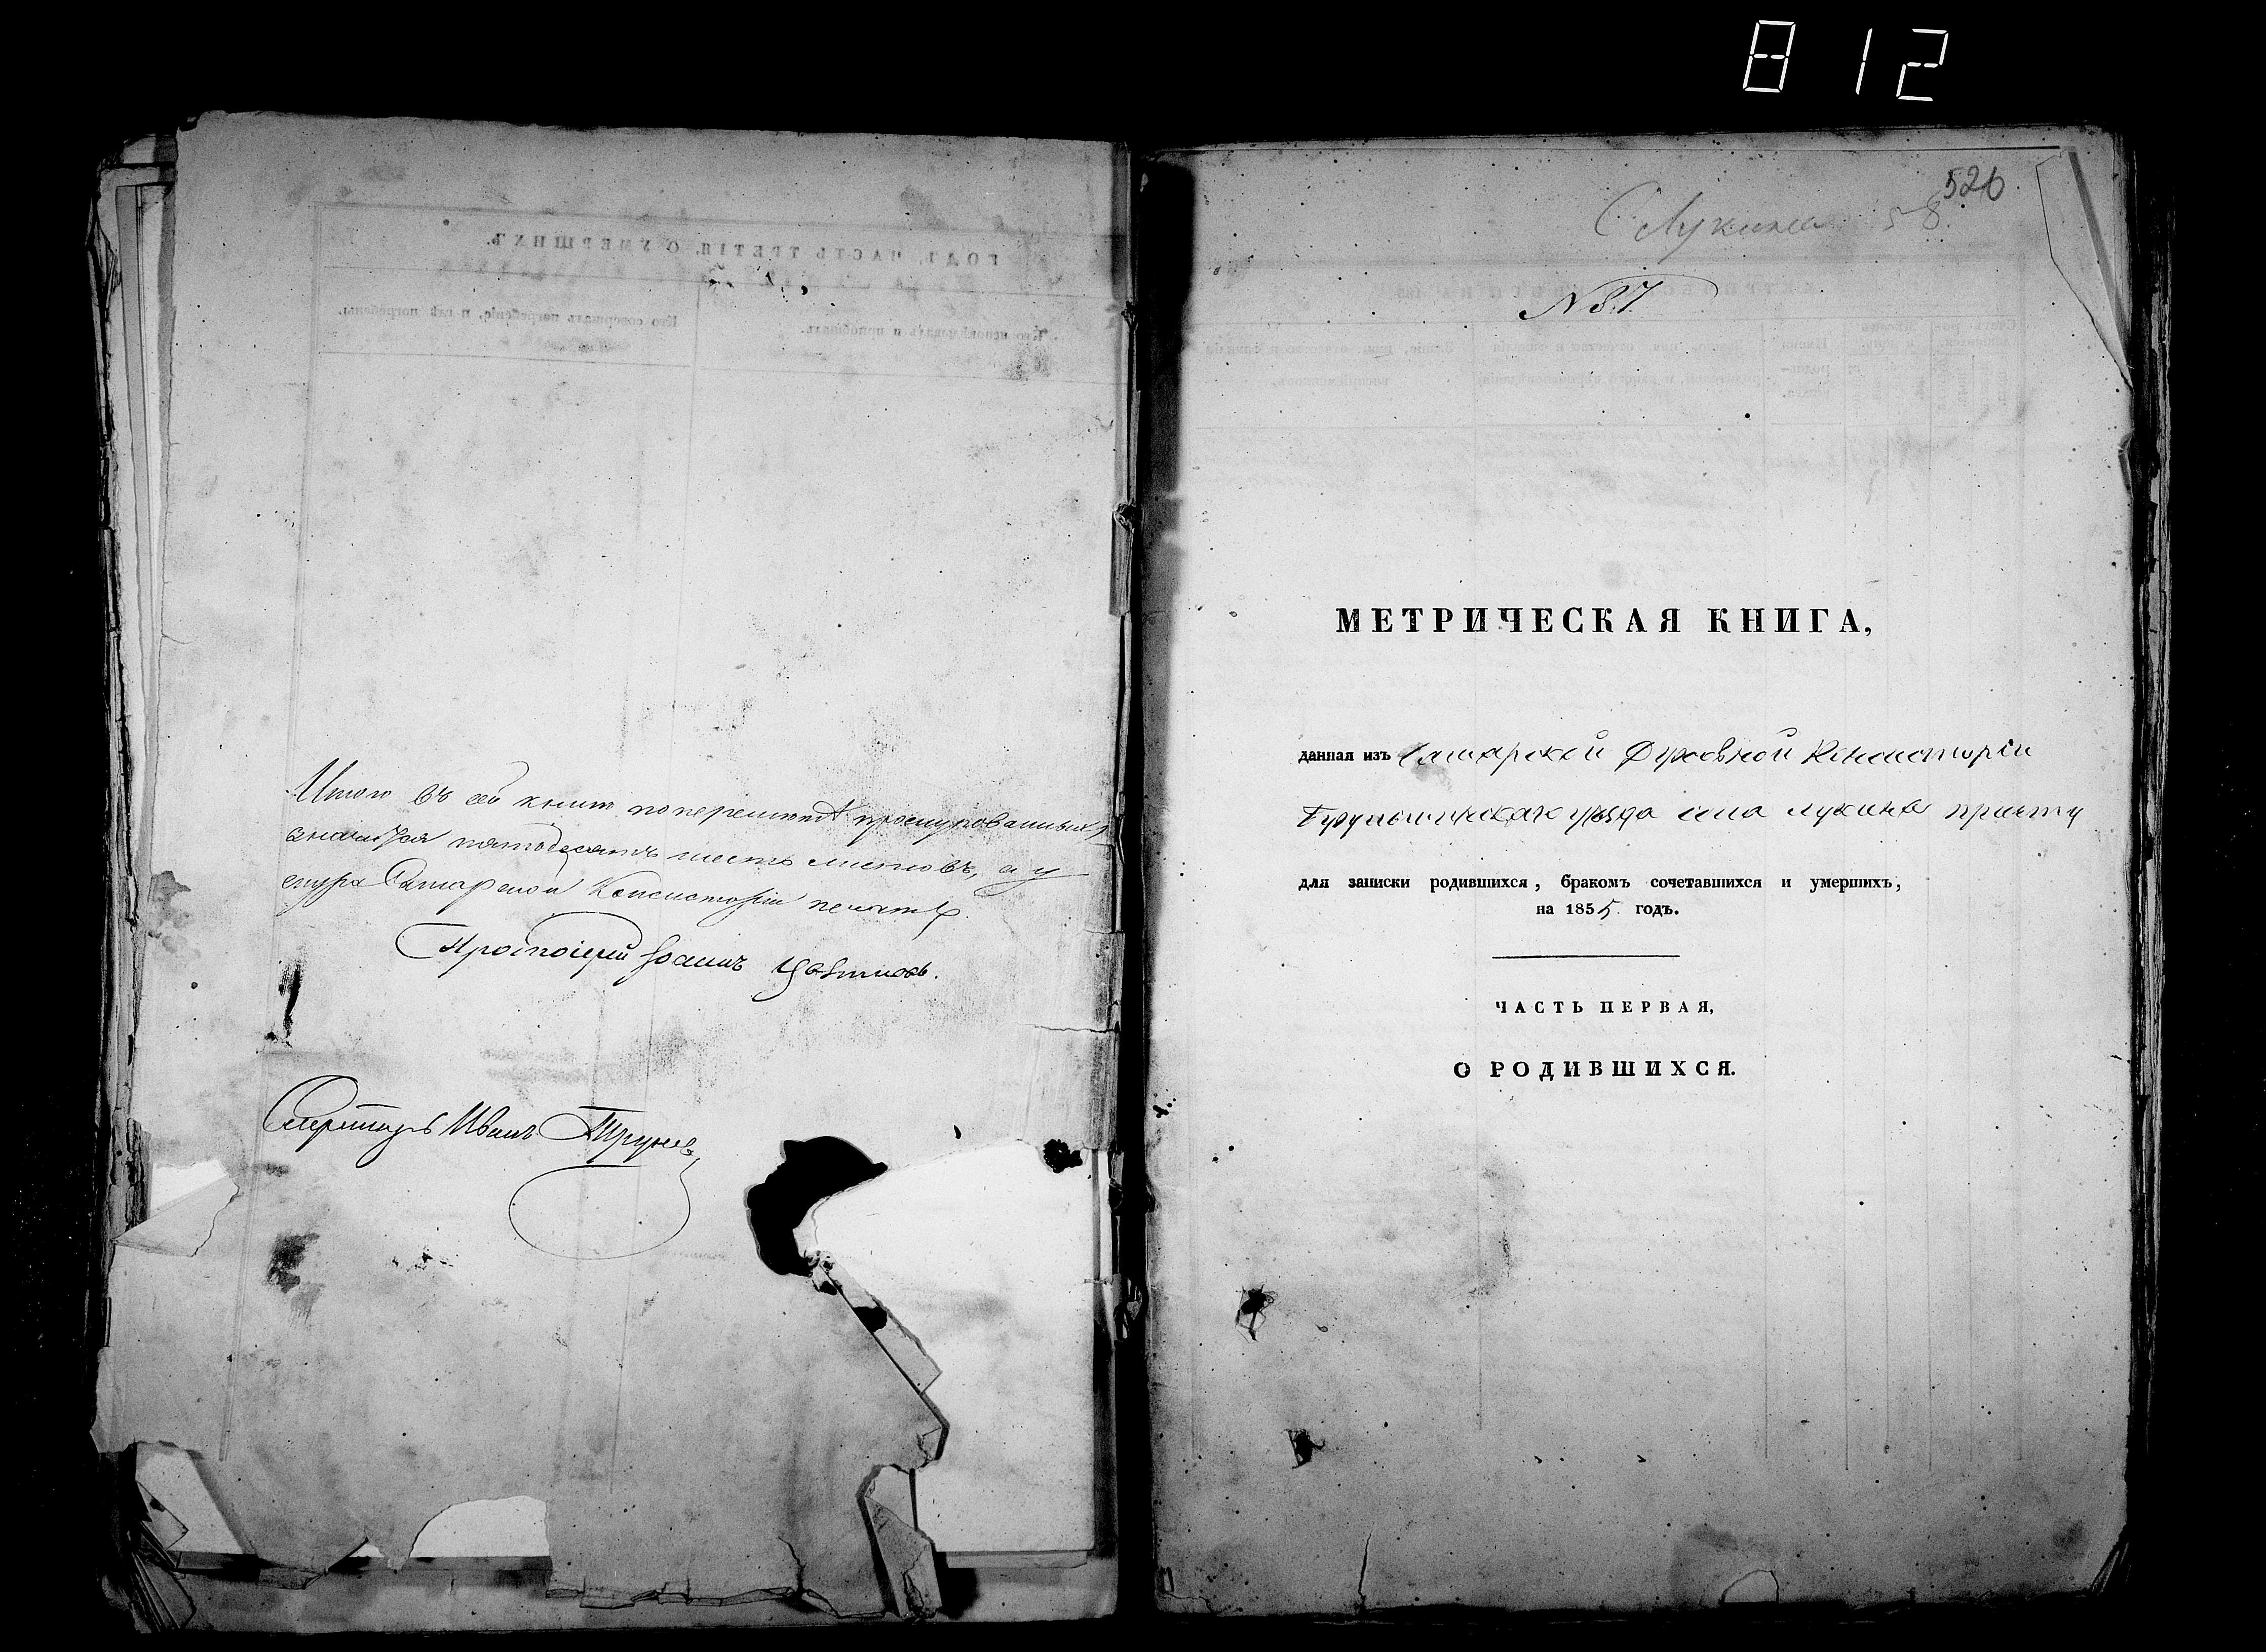 812
Итого въ сей книге поперешнѣ прошнурованныхъ
значится пятьдесятъ шесть листовъ, а у
снура Самарской Консисторіи печать.
Протоіерей Іоаннъ Цвѣтковъ.
Секретарь Иванъ
526
С Лукина 58.
№ 87.
МЕТРИЧЕСКАЯ КНИГА,
данная изъ Самарской Духовной Консисторіи
Бугульминскаго уѣзда села Лукина причту
для записки родившихся, бракомъ сочетавшихся и умершихъ,
на 1855 годъ.
ЧАСТЬ ПЕРВАЯ,
О РОДИВШИХСЯ.